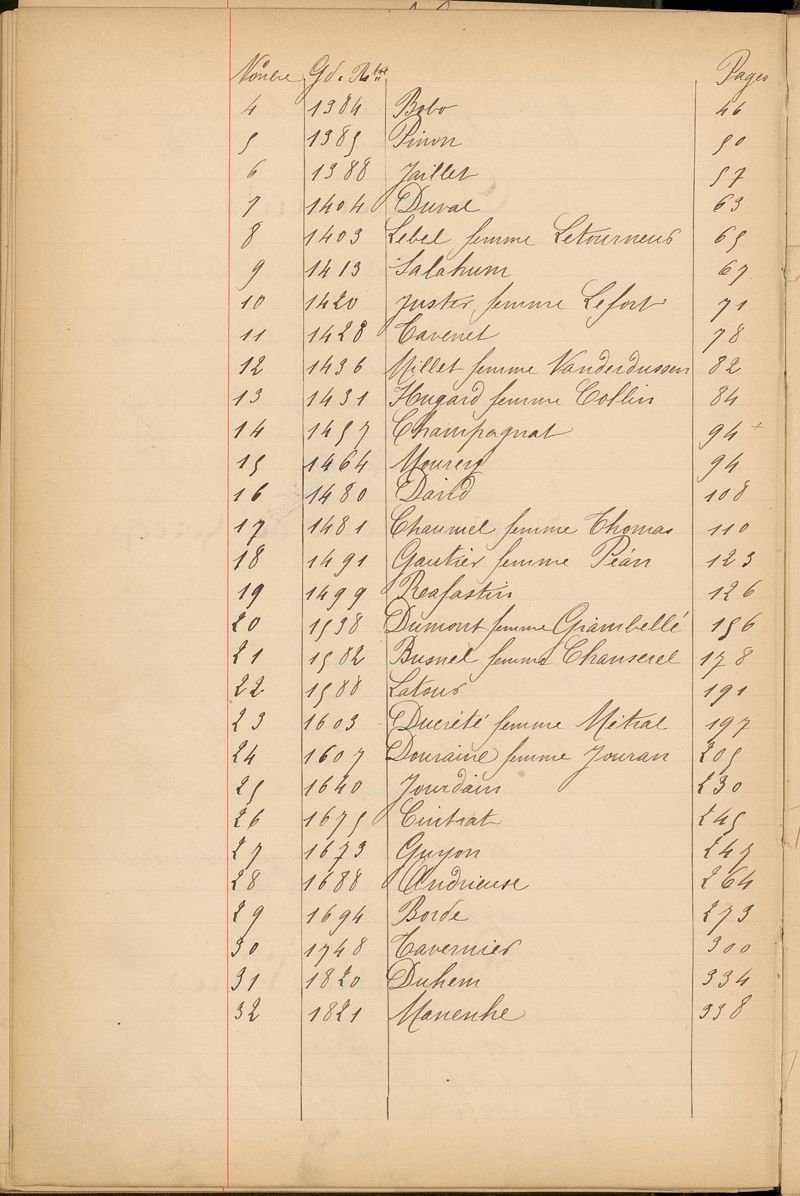 Nombre Gd. Rtre Pages
4 1384 Bobo 46
5 1385 Pinon 50
6 1388 Jaillet 57
7 1404 Duval 63
8 1403 Lebel femme Letourneur 65
9 1413 Salahum 67
10 1420 Juster femme Lefort 71
11 1428 Cavenet 78
12 1436 Millet femme Vanderdussen 82
13 1431 Hugard femme Collin 84
14 1457 Champagnat 94 +
15 1464 94
16 1480 David 108
17 1481 Chaumel femme Thomas 110
18 1491 Gautier femme Péan 123
19 1499 Rafastin 126
20 1538 Dumont femme Giambellé 156
21 1582 Busnel femme Chanserel 178
22 1588 Latour 191
23 1603 Ducrété femme Métral 197
24 1607 Douraine femme Jouran 205
25 1640 Jourdain 230
26 1675 Cintrat 245
27 1673 Guyon 247
28 1688 Andrieuse 264
29 1694 Borde 273
30 1748 Tavernier 300
31 1820 Duhem 334
32 1821 Manenhe 338